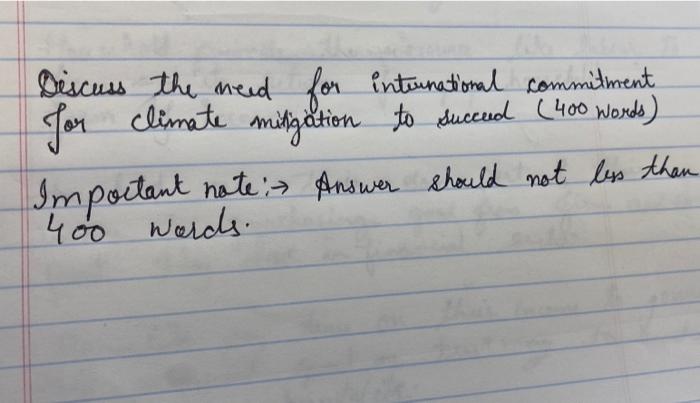 Discuss the need for international commitment
for climate mitigation to succeed (400 words)
Important note:→ Answer should not less than
400 words.